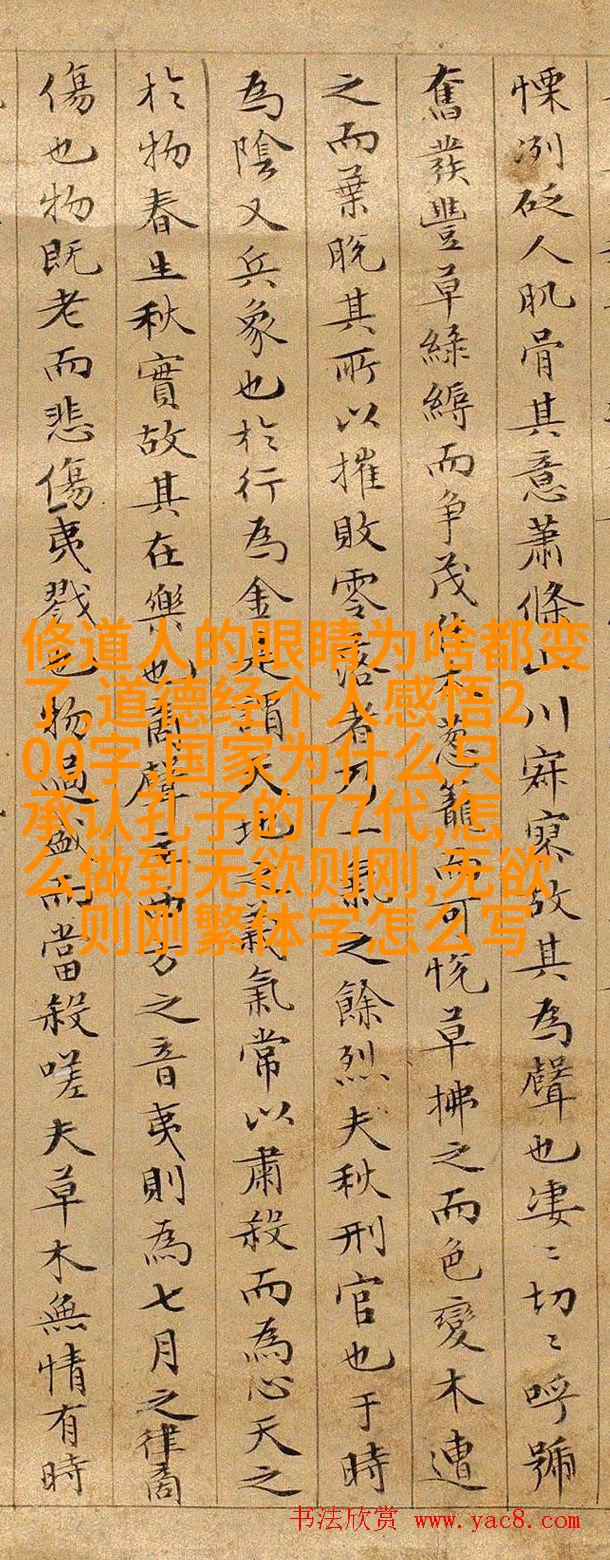 慄冽砭人肌骨其意蕭條山川寂寥故其為聲也凄〻切〻呼號
奮發豐草綠縟而争茂佳木葱籠而可悅草拂之而色變木遭
之而葉脫其所以摧敗零落者乃一氣之餘烈夫秋刑官也于時
為陰又兵象也於行為金是謂天地之義氣常以肅殺而為心天之
於物春生秋實故其在樂也商聲主西方之音夷則為七月之律商
傷也物既老而悲傷夷戮也物過盛而當殺嗟夫草木無情有時
修道人的眼睛为啥都变
了,道德经个人感悟2
00字,国家为什么只
承认孔子的77代,怎
么做到无欲则刚,无欲
则刚繁体字怎么写
书法欣赏 www.yac8.com